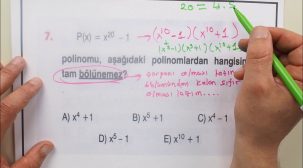 20 = 4.5
7. P(x) = x²⁰ − 1 → (x¹⁰-1)(x¹⁰+1)
(x⁵-1)(x⁵+1)(x¹⁰+1)
polinomu, aşağıdaki polinomlardan hangisin
tam bölünemez? → çarpanı olması lazım
bölümünden kalan sıfır
olması lazım....
A) x⁴ + 1 B) x⁵ + 1 C) x⁴ − 1
D) x⁵ − 1 E) x¹⁰ + 1